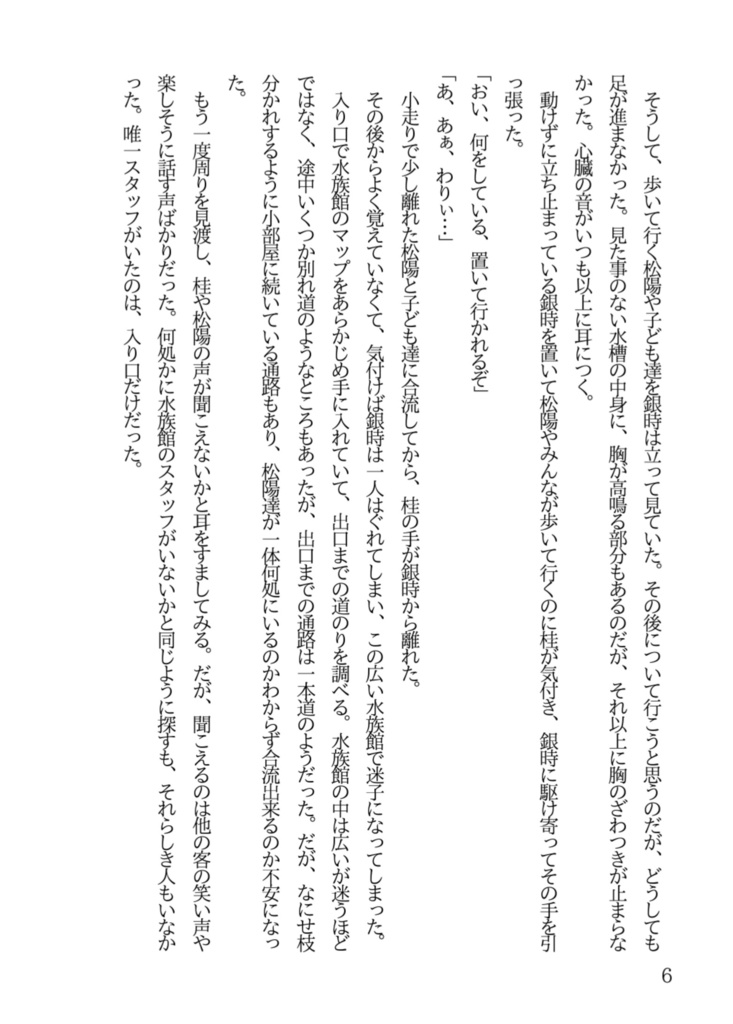 そうして、歩いて行く松陽や子ども達を銀時は立って見ていた。その後について行こうと思うのだが、どうしても
足が進まなかった。見た事のない水槽の中身に、胸が高鳴る部分もあるのだが、それ以上に胸のざわつきが止まらな
かった。心臓の音がいつも以上に耳につく。
　動けずに立ち止まっている銀時を置いて松陽やみんなが歩いて行くのに桂が気付き、銀時に駆け寄ってその手を引
っ張った。
「おい、何をしている、置いて行かれるぞ」
「あ、あぁ、わりぃ…」
　小走りで少し離れた松陽と子ども達に合流してから、桂の手が銀時から離れた。
　その後からよく覚えていなくて、気付けば銀時は一人はぐれてしまい、この広い水族館で迷子になってしまった。
　入り口で水族館のマップをあらかじめ手に入れていて、出口までの道のりを調べる。水族館の中は広いが迷うほど
ではなく、途中いくつか別れ道のようなところもあったが、出口までの通路は一本道のようだった。だが、なにせ枝
分かれするように小部屋に続いている通路もあり、松陽達が一体何処にいるのかわからず合流出来るのか不安になっ
た。
　もう一度周りを見渡し、桂や松陽の声が聞こえないかと耳をすましてみる。だが、聞こえるのは他の客の笑い声や
楽しそうに話す声ばかりだった。何処かに水族館のスタッフがいないかと同じように探すも、それらしき人もいなか
った。唯一スタッフがいたのは、入り口だけだった。
6